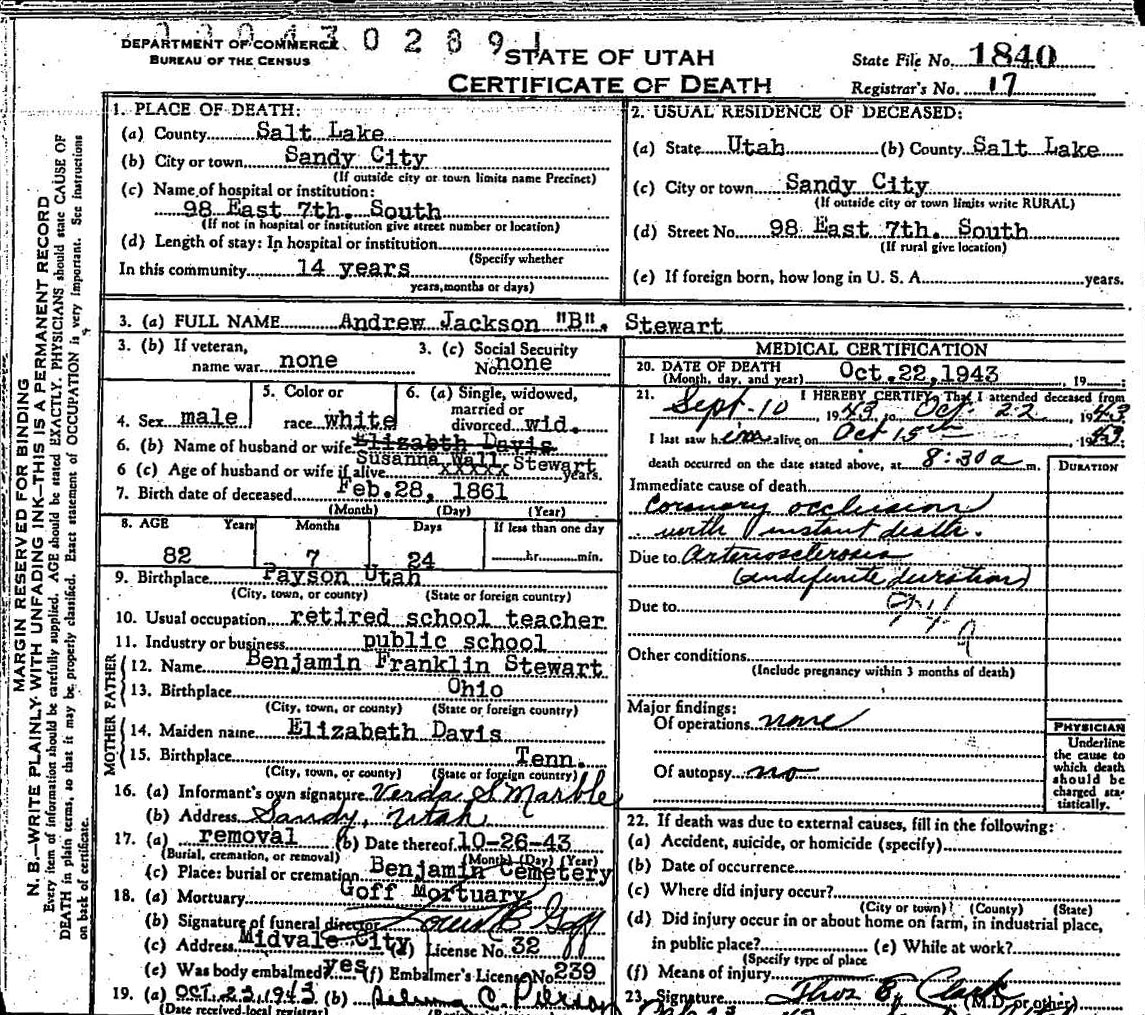 DEPARTMENT OF COMMERCE
BUREAU OF THE CENSUS
0 4 3 0 2 8 9 1
STATE OF UTAH
CERTIFICATE OF DEATH
State File No. 1840
Registrar's No. 17
MARGIN RESERVED FOR BINDING
N. B.—WRITE PLAINLY, WITH UNFADING INK—THIS IS A PERMANENT RECORD
Every item of information should be carefully supplied. AGE should be stated EXACTLY. PHYSICIANS should state CAUSE OF
DEATH in plain terms, so that it may be properly classified. Exact statement of OCCUPATION is very important. See instructions
on back of certificate.
1. PLACE OF DEATH:
(a) County Salt Lake
(b) City or town Sandy City
(If outside city or town limits name Precinct)
(c) Name of hospital or institution:
98 East 7th. South
(If not in hospital or institution give street number or location)
(d) Length of stay: In hospital or institution
(Specify whether
In this community 14 years
years, months or days)
2. USUAL RESIDENCE OF DECEASED:
(a) State Utah (b) County Salt Lake
(c) City or town Sandy City
(If outside city or town limits write RURAL)
(d) Street No. 98 East 7th. South
(If rural give location)
(e) If foreign born, how long in U. S. A. years.
3. (a) FULL NAME Andrew Jackson "B". Stewart
3. (b) If veteran,
name war none
3. (c) Social Security
No. none
4. Sex male
5. Color or
race white
6. (a) Single, widowed,
married or
divorced wid.
6. (b) Name of husband or wife Elizabeth Davis
Susanna Wall Stewart
6 (c) Age of husband or wife if alive xxxxx years.
7. Birth date of deceased Feb. 28, 1861
(Month) (Day) (Year)
8. AGE Years Months Days If less than one day
82 7 24 hr. min.
9. Birthplace Payson Utah
(City, town, or county) (State or foreign country)
10. Usual occupation retired school teacher
11. Industry or business public school
FATHER
12. Name Benjamin Franklin Stewart
13. Birthplace Ohio
(City, town, or county) (State or foreign country)
MOTHER
14. Maiden name Elizabeth Davis
15. Birthplace Tenn.
(City, town, or county) (State or foreign country)
16. (a) Informant's own signature Verda S Marble
(b) Address Sandy, Utah
17. (a) removal (b) Date thereof 10-26-43
(Burial, cremation, or removal) (Month) (Day) (Year)
(c) Place: burial or cremation Benjamin Cemetery
18. (a) Mortuary Goff Mortuary
(b) Signature of funeral director Louis B Goff
(c) Address Midvale City (d) License No. 32
(e) Was body embalmed? yes (f) Embalmer's License No 239
19. (a) OCT. 23, 1943 (b)
(Date received local registrar)
MEDICAL CERTIFICATION
20. DATE OF DEATH
(Month, day, and year) Oct. 22, 1943, 19
21. I HEREBY CERTIFY, That I attended deceased from
Sept-10 1943 to Oct. 22 1943
I last saw him alive on Oct 15th 1943
death occurred on the date stated above, at 8:30 a m.
DURATION
Immediate cause of death
Coronary occlusion
with instant death.
Due to Arteriosclerosis
(indefinite duration)
Due to
Other conditions
(Include pregnancy within 3 months of death)
Major findings:
Of operations none
Of autopsy no
PHYSICIAN
Underline
the cause to
which death
should be
charged sta-
tistically.
22. If death was due to external causes, fill in the following:
(a) Accident, suicide, or homicide (specify)
(b) Date of occurrence
(c) Where did injury occur?
(City or town) (County) (State)
(d) Did injury occur in or about home on farm, in industrial place,
in public place? (e) While at work?
(Specify type of place
(f) Means of injury
23. Signature Thos E. Clark (M.D. or other)